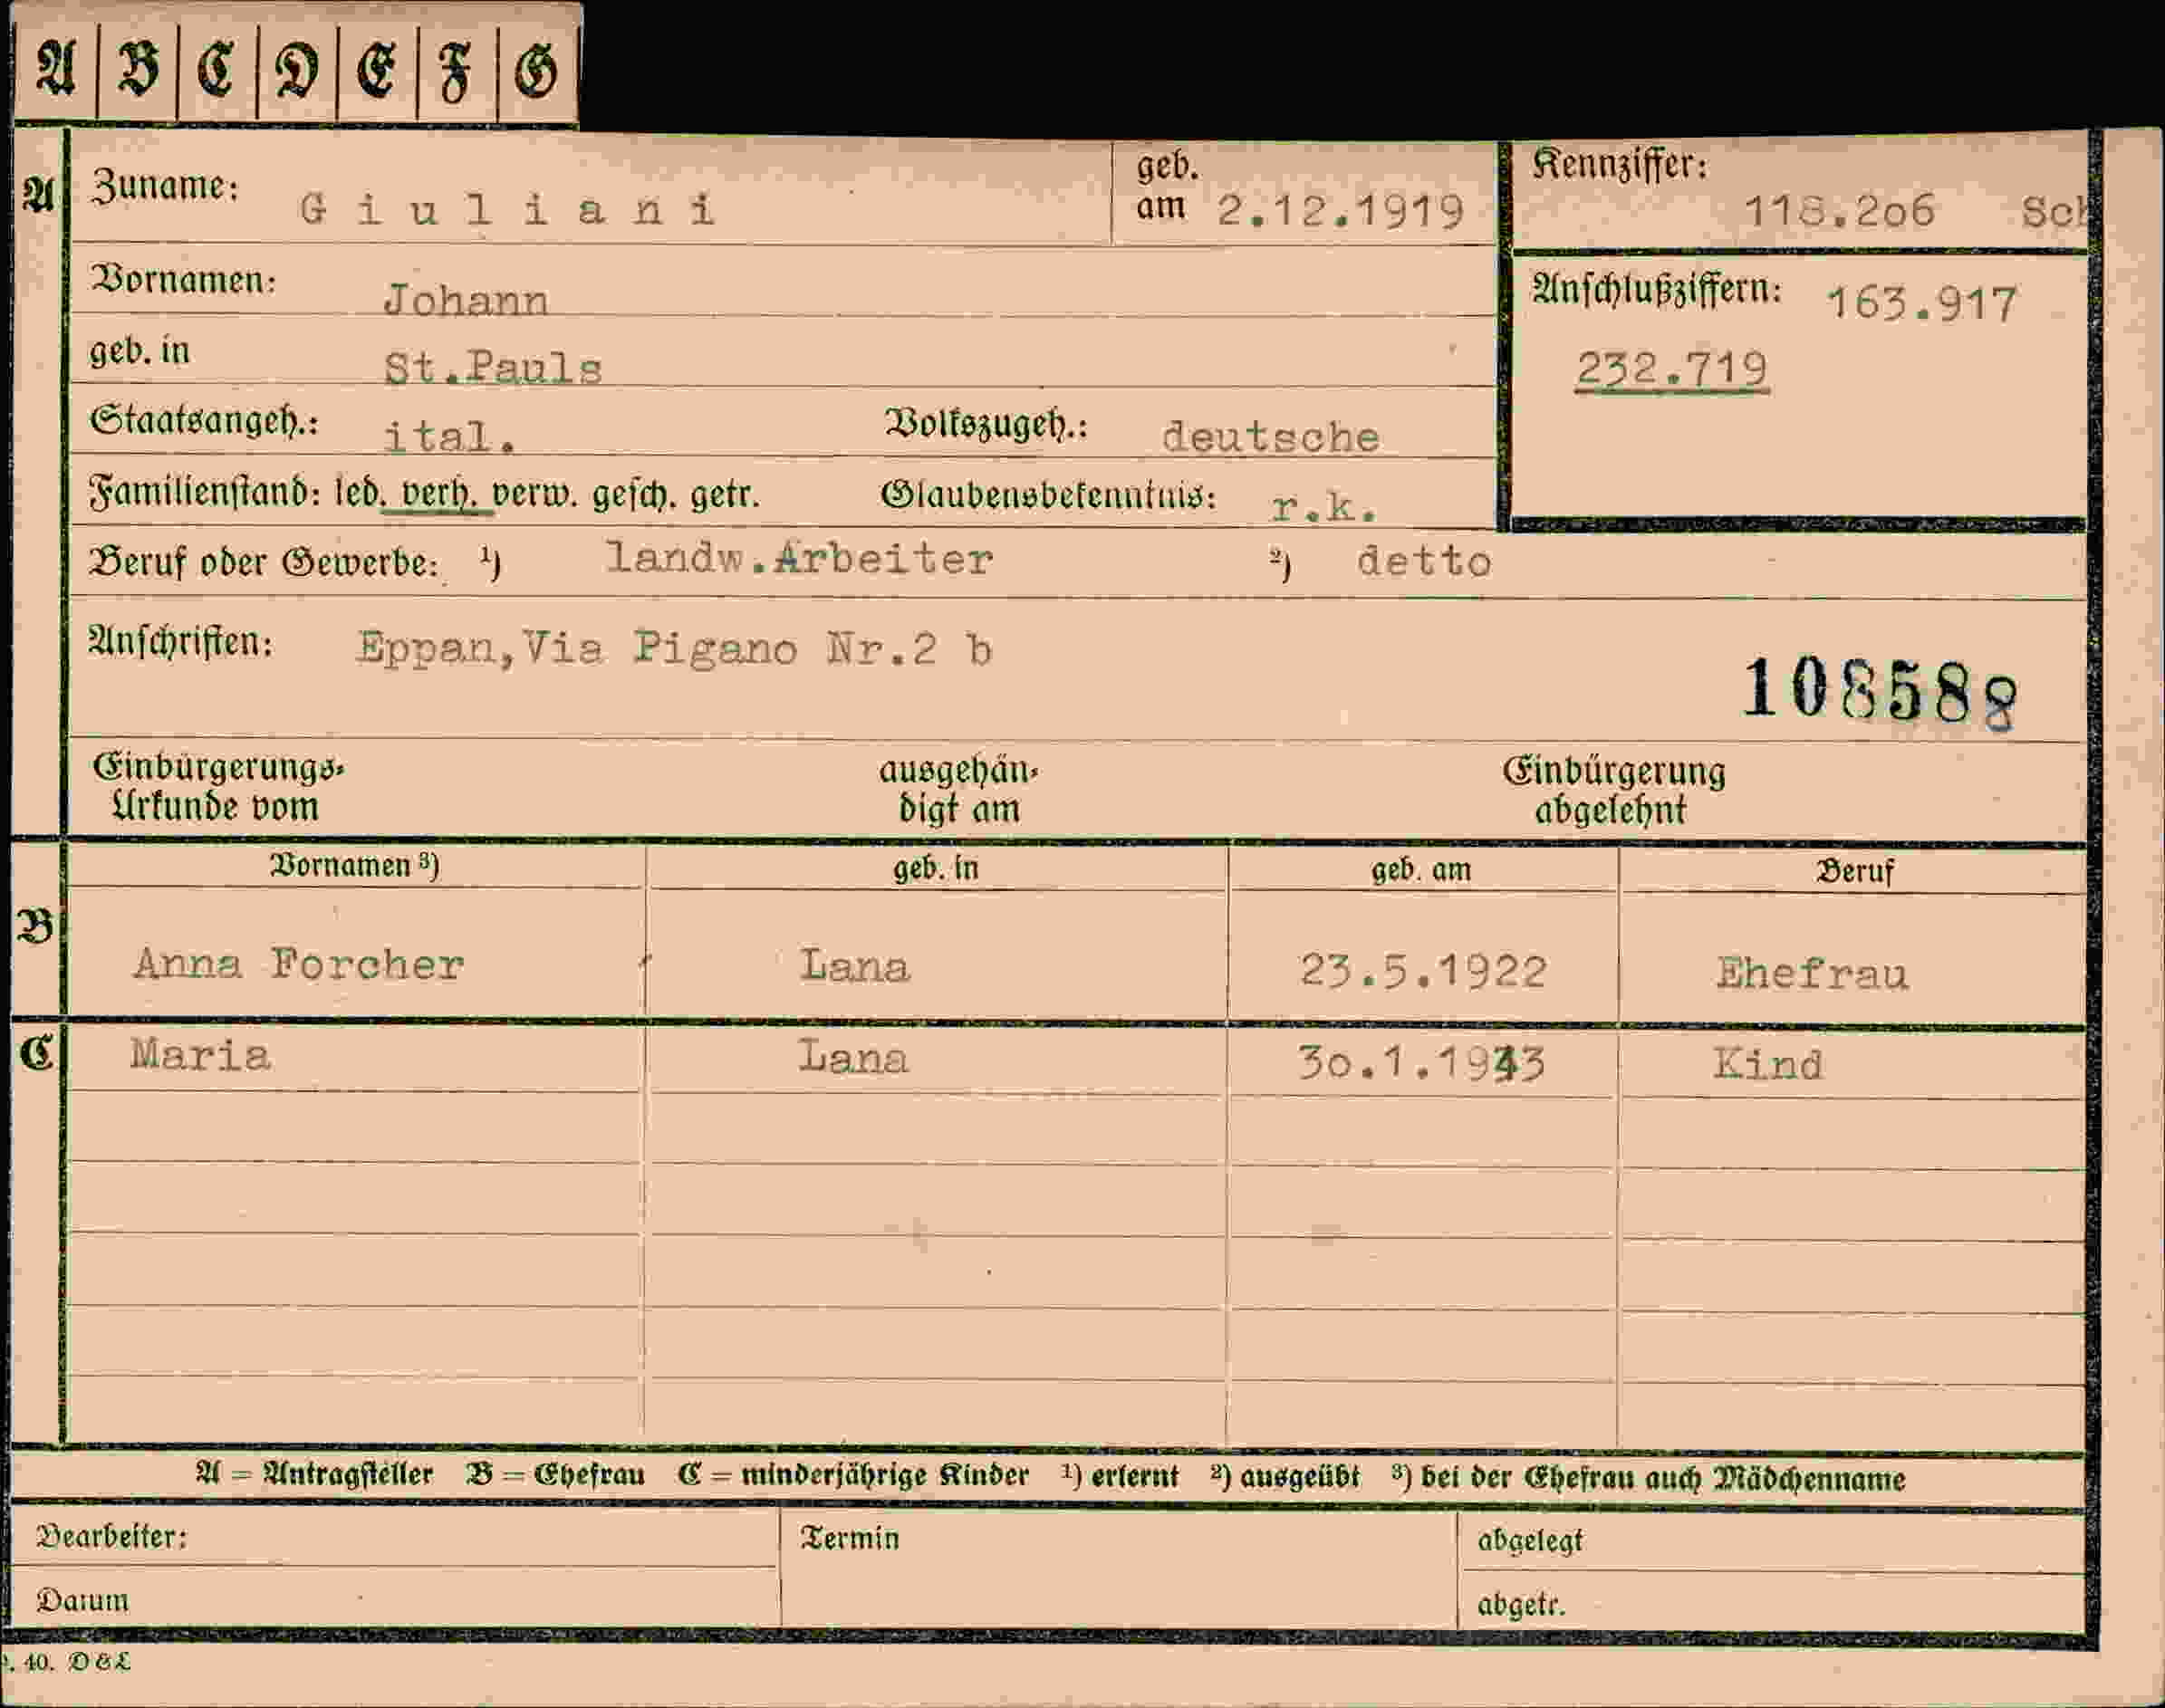 A B C D E F G
A Zuname: Giuliani geb. am 2.12.1919 Kennziffer: 118.2o6 Sch
Vornamen: Johann Anschlußziffern: 163.917
geb. in St.Pauls 232.719
Staatsangeh.: ital. Volkszugeh.: deutsche
Familienstand: led. verh. verw. gesch. getr. Glaubensbekenntnis: r.k.
Beruf oder Gewerbe: 1) landw.Arbeiter 2) detto
Anschriften: Eppan,Via Pigano Nr.2 b
108588
Einbürgerungs- ausgehän- Einbürgerung
Urkunde vom digt am abgelehnt
Vornamen 3) geb. in geb. am Beruf
B Anna Forcher Lana 23.5.1922 Ehefrau
C Maria Lana 3o.1.1943 Kind
A = Antragsteller B = Ehefrau C = minderjährige Kinder 1) erlernt 2) ausgeübt 3) bei der Ehefrau auch Mädchenname
Bearbeiter: Termin abgelegt
Datum abgetr.
. 40. D & L